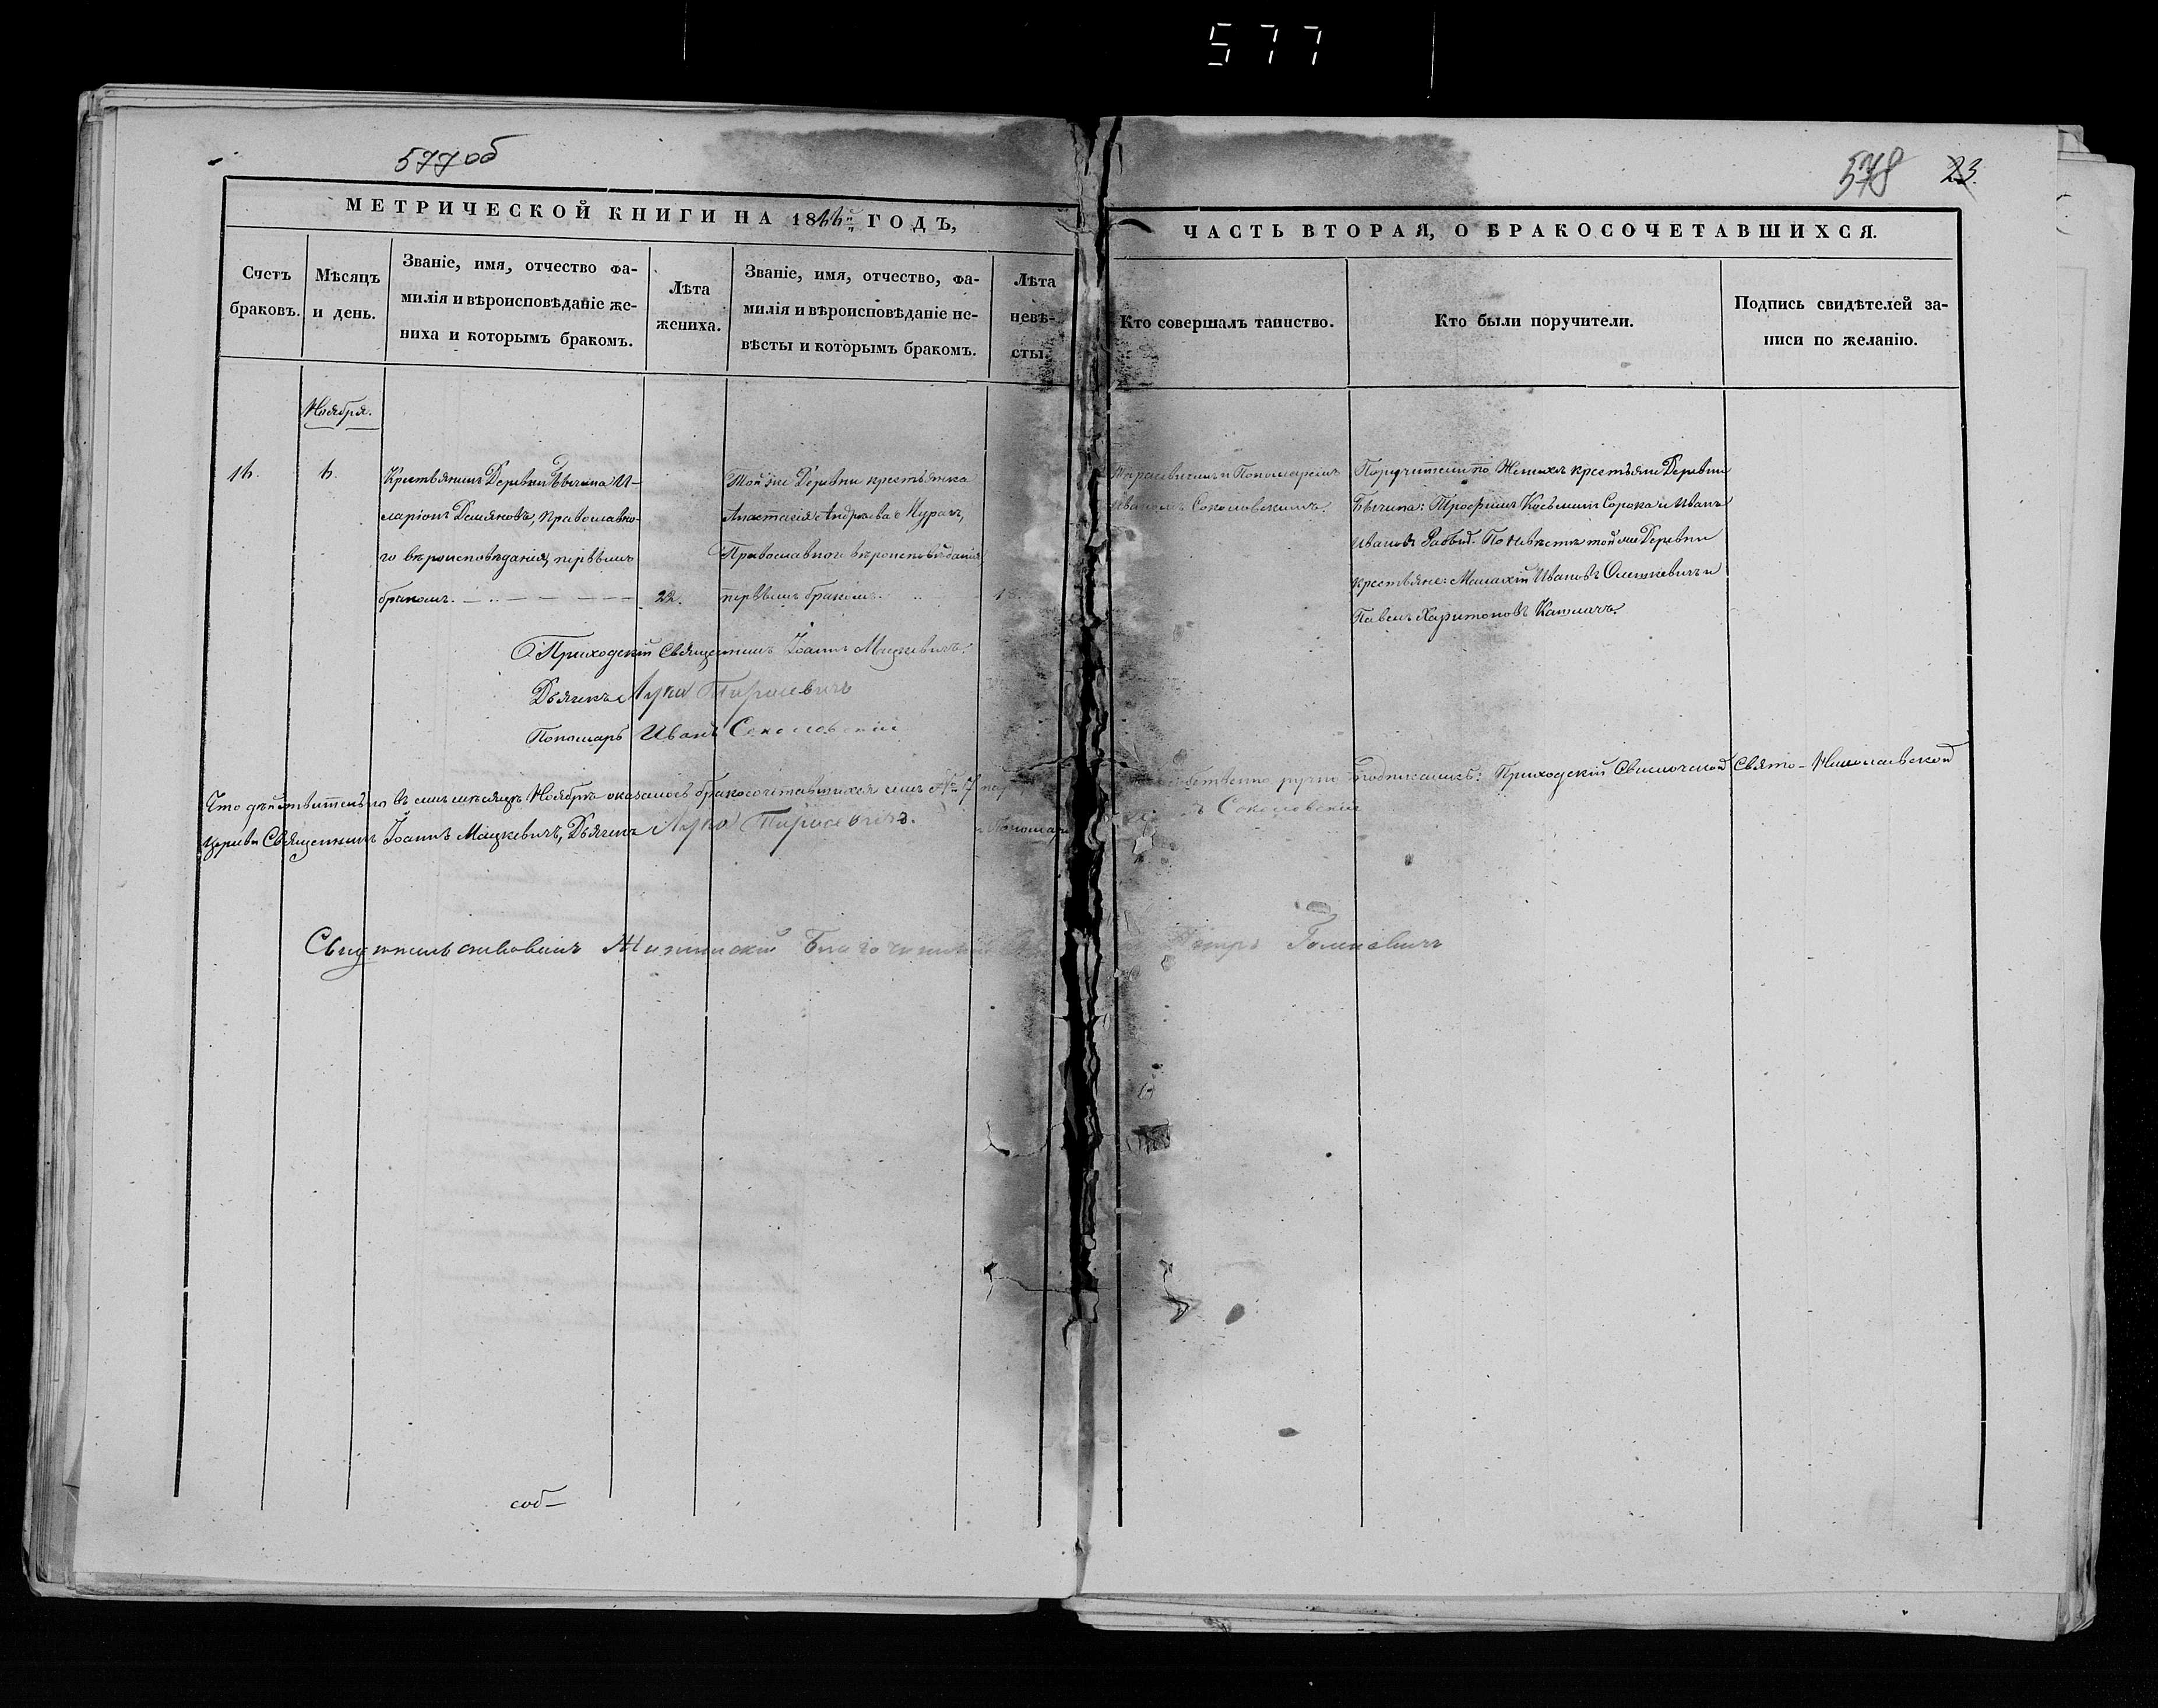 577
577 об
578 23.
МЕТРИЧЕСКОЙ КНИГИ НА 18 ГОДЪ,
ЧАСТЬ ВТОРАЯ, О БРАКОСОЧЕТАВШИХСЯ.
Счетъ браковъ.
Мѣсяцъ и день.
Званіе, имя, отчество фа-
милія и вѣроисповѣданіе же-
ниха и которымъ бракомъ.
Лѣта
жениха.
Званіе, имя, отчество, фа-
милія и вѣроисповѣданіе не-
вѣсты и которымъ бракомъ.
Лѣта
невѣ-
сты.
Кто совершалъ таинство.
Кто были поручители.
Подпись свидѣтелей за-
писи по желанію.
Ноября.
Крестьянинъ Деревни И-
ларіонъ Демяновъ, Православно-
го вѣроисповѣданія, первымъ
бракомъ.
22.
Той же Деревни крестьянка
Анастасія Андреева
Православнаго вѣроисповѣданія
первымъ бракомъ.
Тарасевичемъ и Пономаремъ
Иваномъ Соколовскимъ.
Поручители по Женихѣ крестьяне Деревни
Трофимъ Сорока и Иванъ
Ивановъ По Невѣстѣ той же Деревни
крестьяне: Ивановъ Олешкевичъ и
Павелъ Харитоновъ
Приходскій Священникъ Іоаннъ Мацкевичъ.
Дьячекъ Лука Тарасевичъ
Пономарь Иванъ Соколовскій
Что дѣйствительно въ семъ мѣсяцѣ Ноябрѣ оказалось бракосочетавшихся ручно подписались: Приходскій Свято-Николаевской
Церкви Священникъ Іоаннъ Мацкевичъ, Дьячекъ Лука Тарасевичъ. и Пономарь Соколовскій
Свидѣтельствовалъ Благочинный Петръ